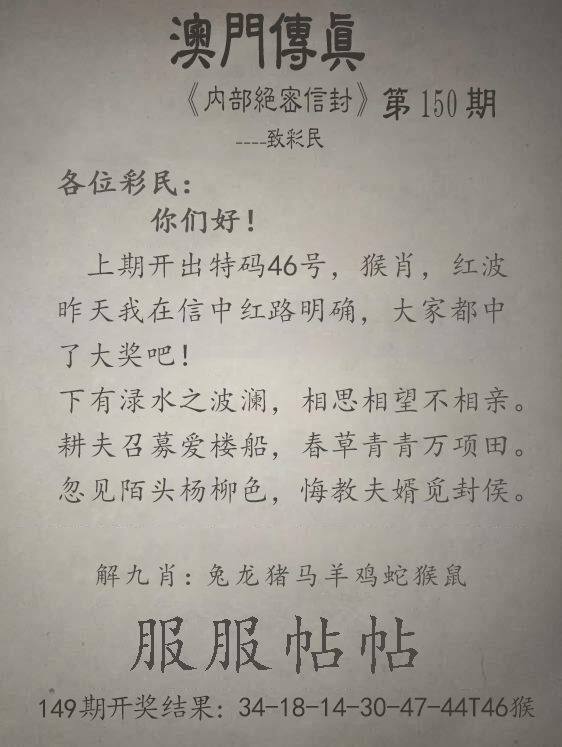 澳門傳眞
《内部絕密信封》第150期
----致彩民
各位彩民：
你们好！
上期开出特码46号，猴肖，红波
昨天我在信中红路明确，大家都中
了大奖吧！
下有渌水之波澜，相思相望不相亲。
耕夫召募爱楼船，春草青青万项田。
忽见陌头杨柳色，悔教夫婿觅封侯。
解九肖：兔龙猪马羊鸡蛇猴鼠
服服帖帖
149期开奖结果：34-18-14-30-47-44T46猴